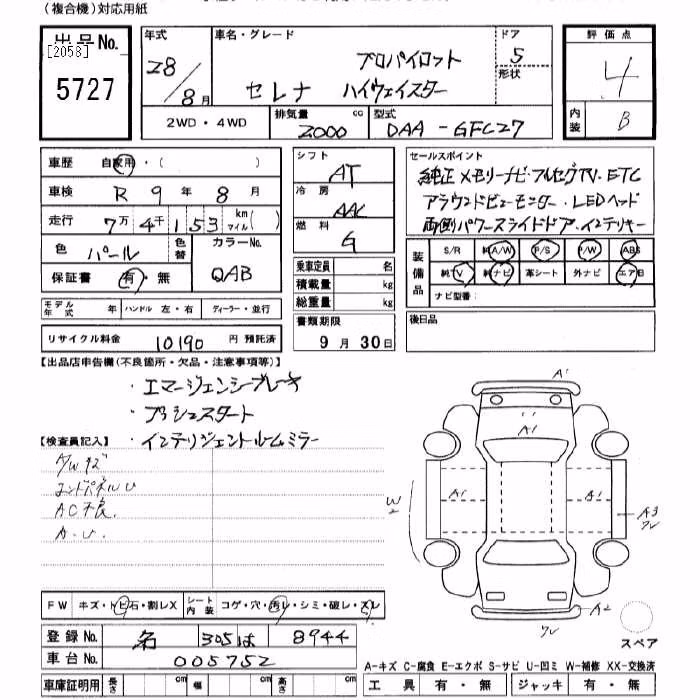 (複合機)対応用紙
出品No.
[2058]
5727
年式
28/8月
車名・グレード
プロパイロット
セレナ ハイウェイスター
ドア
5
形状
評価点
4
内装
B
2WD・4WD
排気量
2000
cc
型式
DAA-GFC27
車歴 自家用・( )
車検 R 9年 8月
走行 7万 4千 153 km マイル( )
色 パール
色替
カラーNo.
QAB
保証書 有・無
シフト
AT
冷房
AAC
燃料
G
乗車定員 名
積載量 kg
総重量 kg
セールスポイント
純正メモリーナビ・フルセグTV・ETC
アラウンドビューモニター・LEDヘッド
両側パワースライドドア・インテリキー
装備品
S/R 純A/W P/S P/W ABS
純TV 純ナビ 革シート 外ナビ エアB
ナビ型番:
モデル年式 年 ハンドル 左・右 ディーラー・並行
書類期限
9月30日
後日品
リサイクル料金 10190 円 預託済
【出品店申告欄(不良箇所・欠品・注意事項等)】
・エマージェンシーブレーキ
・プッシュスタート
・インテリジェントルームミラー
【検査員記入】
A/Wキズ
エンドパネルU
AC不良.
A・U.
A1
A1
A1
A1
W2
A3
A2
スペア
FW キズ・トビ石・割レX
シート内装 コゲ・穴・汚レ・シミ・破レ・スレ
登録No. 305は 8944
車台No. 005752
車庫証明用 長さ cm 幅 cm 高さ cm
A-キズ C-腐食 E-エクボ S-サビ U-凹ミ W-補修 XX-交換済
工具 有・無 ジャッキ 有・無